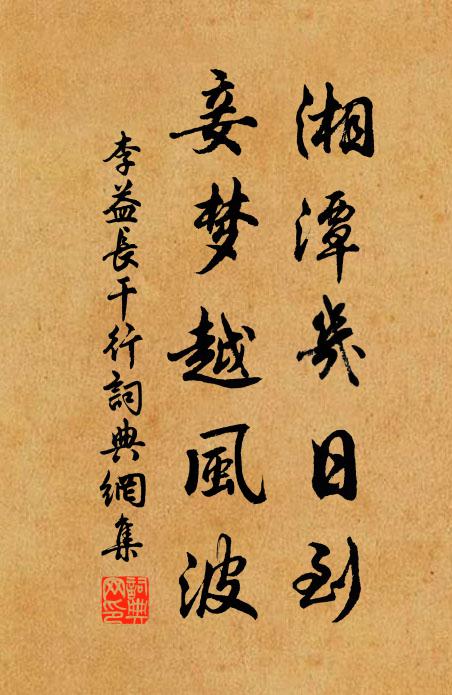 湘潭幾日到
妾梦越風波
李益長干行詞典網集
詞典网印